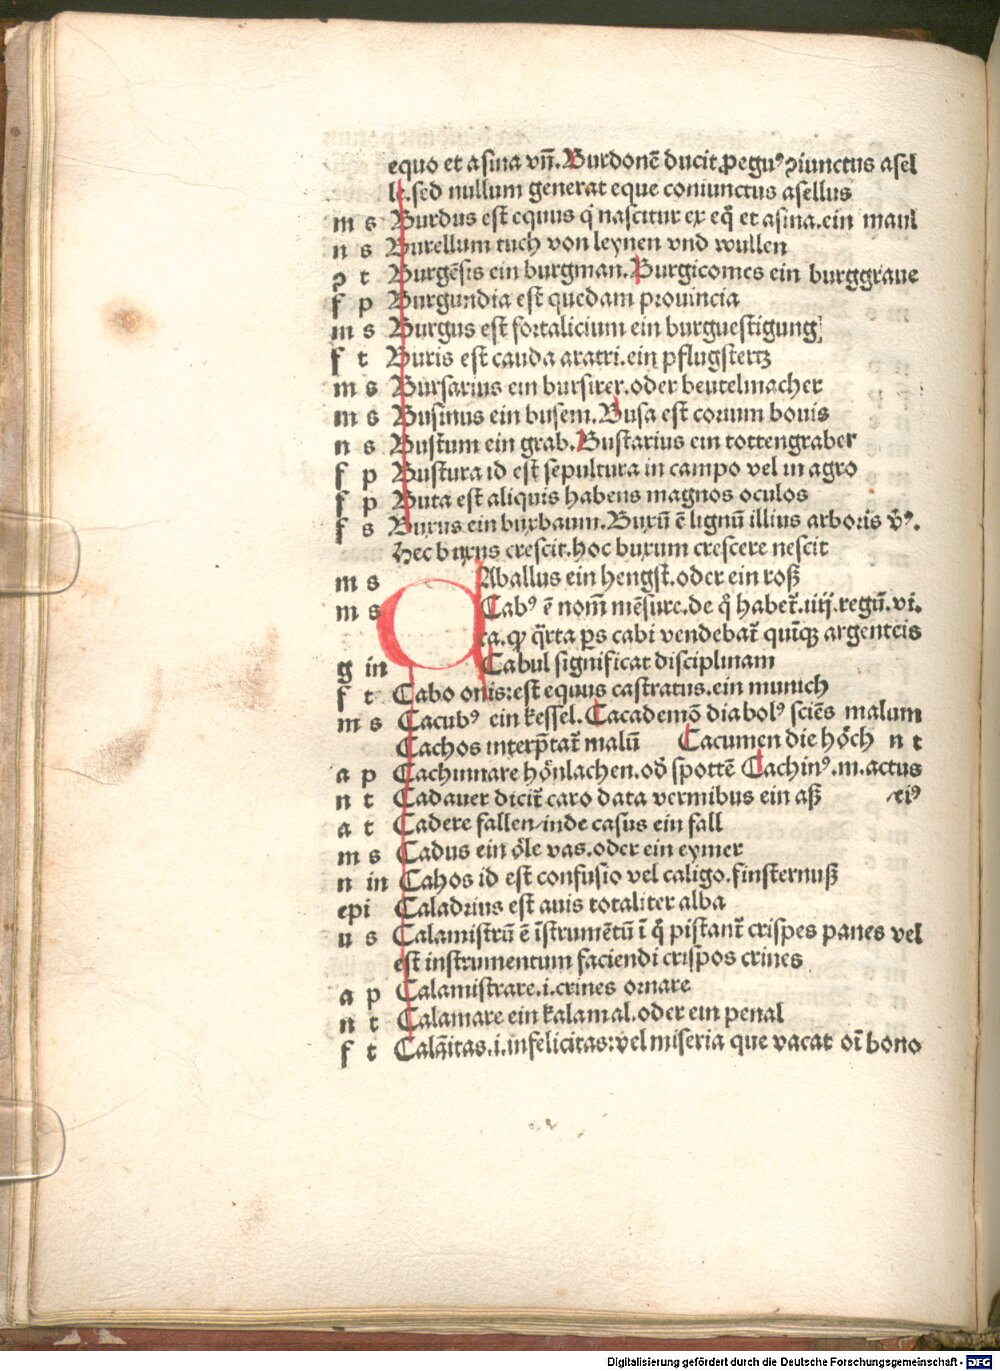 equo et asina vn̄. Burdonē ducit ꝑeguꝰ ꝯiunctus asel
le. sed nullum generat eque coniunctus asellus
m s Burdus est equus q̇ nascitur ex eq̄ et asina. ein maul
n s Burellum tuch von leynen vnd wullen
ꝯ t Burgēsis ein burgman. Burgicomes ein burggraue
f p Burgundia est quedam prouincia
m s Burgus est fortalicium ein burguestigung
f t Buris est cauda aratri. ein pflugstertz
m s Bursarius ein bursirer. oder beutelmacher
m s Businus ein busem. Busa est corium bouis
n s Bustum ein grab. Bustarius ein tottengraber
f p Bustura id est sepultura in campo vel in agro
f p Buta est aliquis habens magnos oculos
f s Buxus ein buxbaum. Buxū ē lignū illius arboris v̄ꝰ.
Hec buxus crescit. hoc buxum crescere nescit
m s Caballus ein hengst. oder ein roß
m s Cabꝰ ē nom̄ mēsure. de q̇ habet᷑. iiij. regū. vi.
ca. ꝙ q̈rta ꝑs cabi vendebat᷑ quīqꝫ argenteis
g in Cabul significat disciplinam
f t Cabo onis: est equus castratus. ein munich
m s Cacubꝰ ein kessel. Cacademō diabolꝰ sciēs malum
Cachos interp̄tat᷑ malū Cacumen die hoͤch n t
a p Cachinnare hoͤnlachen. od̄ spottē Cachinꝰ. m. actus
n t Cadauer dicit᷑ caro data vermibus ein aß tiꝰ
a t Cadere fallen/inde casus ein fall
m s Cadus ein oͤle vas. oder ein eymer
n in Cahos id est confusio vel caligo. finsternuß
epi Caladrius est auis totaliter alba
u s Calamistrū ē īstrumētū ī q̄ pistant᷑ crispes panes vel
est instrumentum faciendi crispos crines
a p Calamistrare. i. crines ornare
n t Calamare ein kalamal. oder ein penal
f t Calāitas. i. infelicitas: vel miseria que vacat oī bono
Digitalisierung gefördert durch die Deutsche Forschungsgemeinschaft - DFG